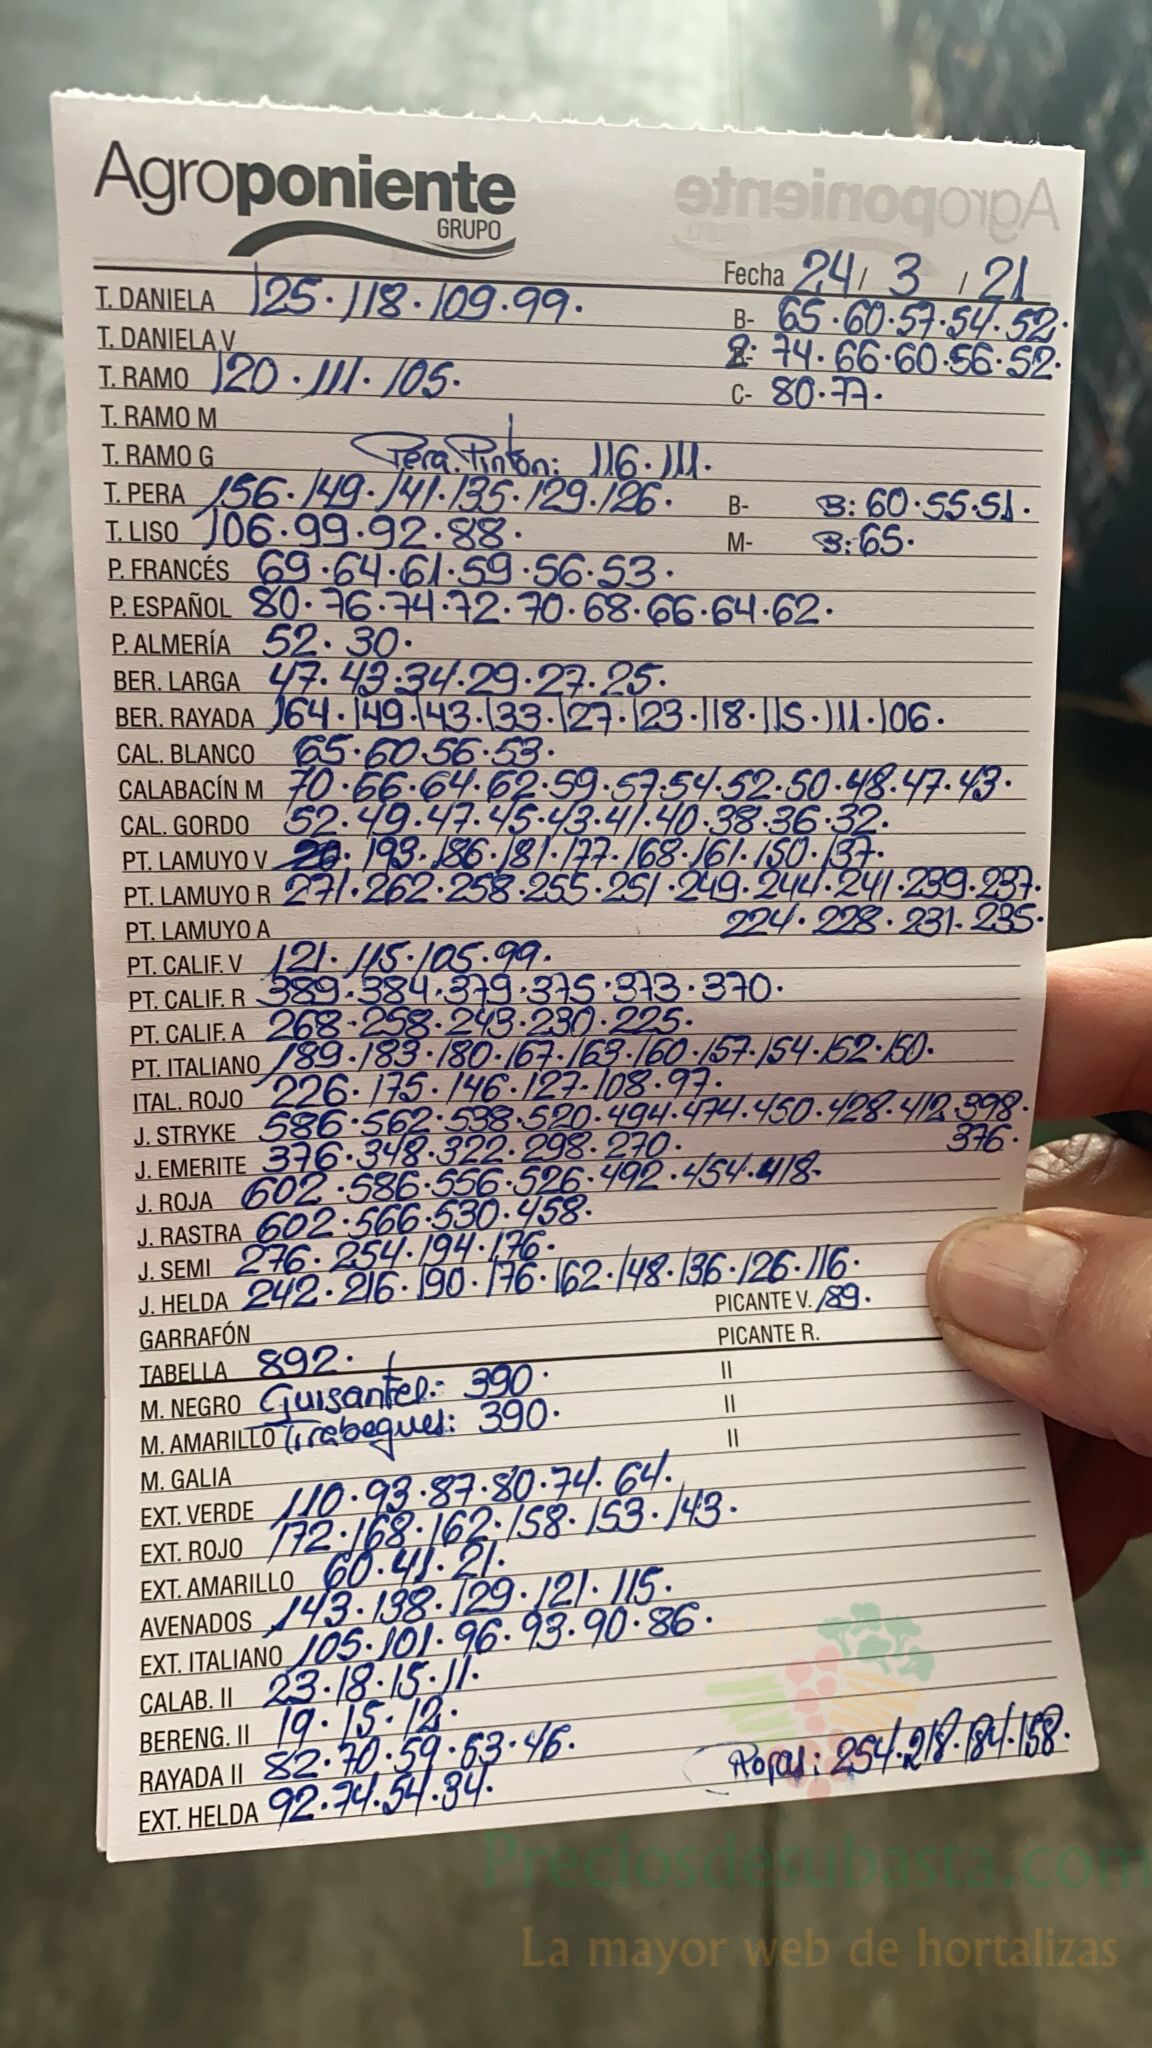 Agroponiente
GRUPO
Fecha 24/ 3 / 21
T. DANIELA 125·118·109·99. B- 65·60·57·54·52·
T. DANIELA V 2: 74·66·60·56·52·
T. RAMO 120·111·105. C- 80·77·
T. RAMO M
T. RAMO G Pera Pintón: 116·111.
T. PERA 156·149·141·135·129·126· B- B: 60·55·51·
T. LISO 106·99·92·88· M- B: 65·
P. FRANCÉS 69·64·61·59·56·53·
P. ESPAÑOL 80·76·74·72·70·68·66·64·62·
P. ALMERÍA 52·30·
BER. LARGA 47·43·34·29·27·25·
BER. RAYADA 164·149·143·133·127·123·118·115·111·106·
CAL. BLANCO 65·60·56·53·
CALABACÍN M 70·66·64·62·59·57·54·52·50·48·47·43·
CAL. GORDO 52·49·47·45·43·41·40·38·36·32·
PT. LAMUYO V 193·186·181·177·168·161·150·137·
PT. LAMUYO R 271·262·258·255·251·249·244·241·239·237·
PT. LAMUYO A 224·228·231·235·
PT. CALIF. V 121·115·105·99·
PT. CALIF. R 389·384·379·375·373·370·
PT. CALIF. A 268·258·243·230·225·
PT. ITALIANO 189·183·180·167·163·160·157·154·152·150·
ITAL. ROJO 226·175·146·127·108·97·
J. STRYKE 586·562·538·520·494·474·450·428·412·398·
376·
J. EMERITE 376·348·322·298·270·
J. ROJA 602·586·556·526·492·454·418·
J. RASTRA 602·566·530·458·
J. SEMI 276·254·194·176·
J. HELDA 242·216·190·176·162·148·136·126·116·
GARRAFÓN PICANTE V. 189·
TABELLA 892· PICANTE R.
M. NEGRO Guisantes: 390· II
M. AMARILLO Tirabeques: 390· II
M. GALIA II
EXT. VERDE 110·93·87·80·74·64·
EXT. ROJO 172·168·162·158·153·143·
EXT. AMARILLO 60·41·21·
AVENADOS 143·138·129·121·115·
EXT. ITALIANO 105·101·96·93·90·86·
CALAB. II 23·18·15·11·
BERENG. II 19·15·12·
RAYADA II 82·70·59·53·46·
EXT. HELDA 92·74·54·34· Rojas: 254·218·184·158·
Preciosdesubasta.com
La mayor web de hortalizas